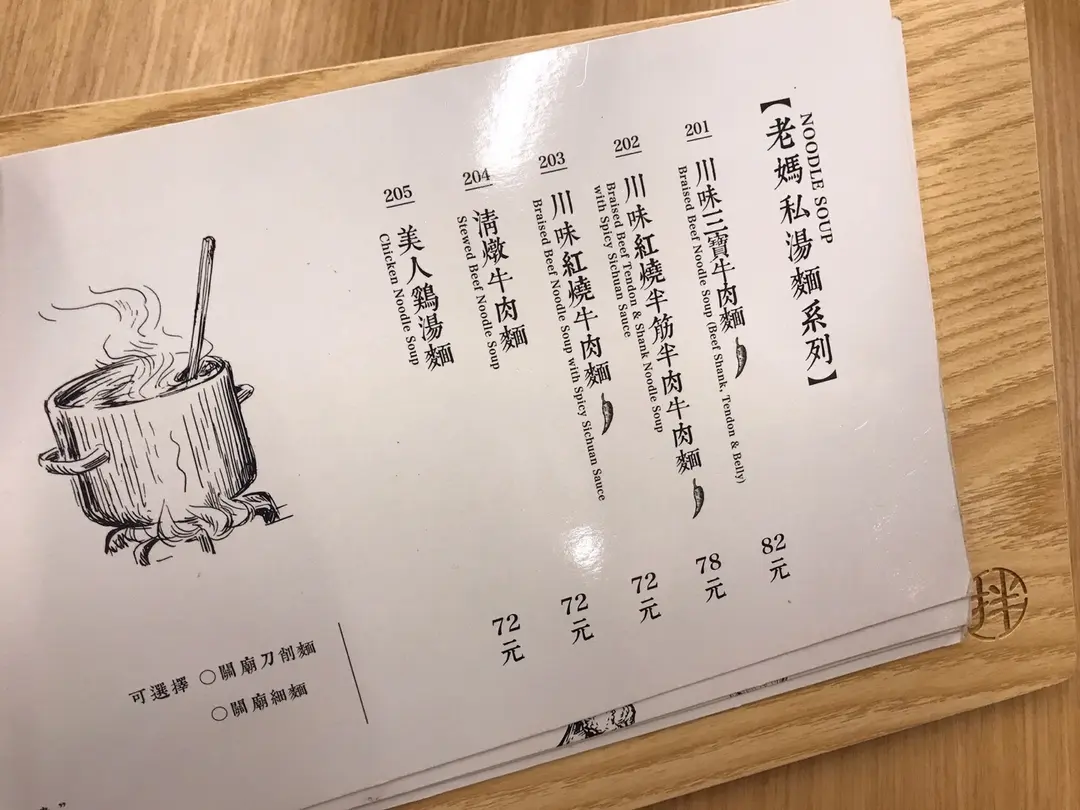 【老媽私湯麵系列】
NOODLE SOUP
201
川味三寶牛肉麵
Braised Beef Noodle Soup (Beef Shank, Tendon & Belly)
82元
202
川味紅燒半筋半肉牛肉麵
Braised Beef Tendon & Shank Noodle Soup
with Spicy Sichuan Sauce
78元
203
川味紅燒牛肉麵
Braised Beef Noodle Soup with Spicy Sichuan Sauce
72元
204
清燉牛肉麵
Stewed Beef Noodle Soup
72元
205
美人鷄湯麵
Chicken Noodle Soup
72元
可選擇 ○關廟刀削麵
○關廟細麵
拌